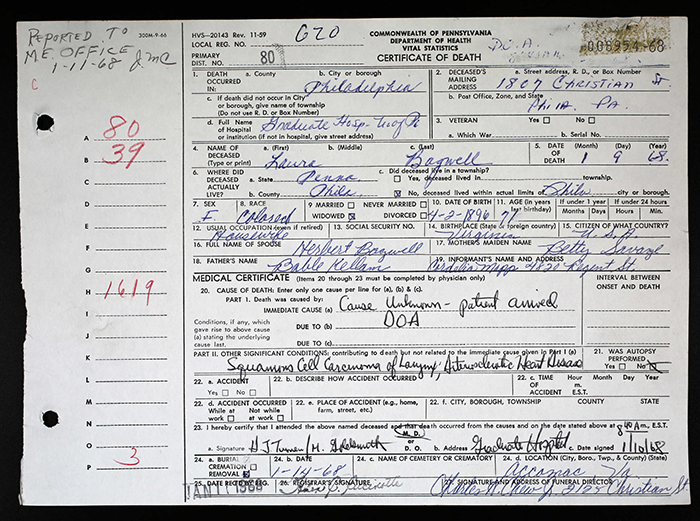 REPORTED TO
M.E. OFFICE
1-11-68 JMC
300M-9-66
C
A 80
B 39
C
D
E
F
G
H 1619
I
J
K
L
M
N
O
P 3
HVS-20143 Rev. 11-59
LOCAL REG. NO. 620
PRIMARY DIST. NO. 80
COMMONWEALTH OF PENNSYLVANIA
DEPARTMENT OF HEALTH
VITAL STATISTICS
CERTIFICATE OF DEATH
D.O.A.
006954-68
1. DEATH OCCURRED IN: a. County b. City or borough Philadelphia
c. If death did not occur in City or borough, give name of township (Do not use R. D. or Box Number)
d. Full Name of Hospital or institution (if not in hospital, give street address) Graduate Hosp-
2. DECEASED'S MAILING ADDRESS a. Street address, R. D., or Box Number 1807 Christian St
b. Post Office, Zone, and State Phila. Pa.
3. VETERAN Yes No
a. Which War b. Serial No.
4. NAME OF DECEASED (Type or print) a. (First) b. (Middle) c. (Last) Laura Bagwell
5. DATE OF DEATH (Month) (Day) (Year) 1 9 68
6. WHERE DID DECEASED ACTUALLY LIVE? a. State Penna b. County Phila
c. Did deceased live in a township?
Yes, deceased lived in township.
No, deceased lived within actual limits of Phila city or borough.
7. SEX F. 8. RACE Colored 9 MARRIED NEVER MARRIED WIDOWED DIVORCED
10. DATE OF BIRTH 4-2-1896 11. AGE (in years last birthday) 71 If under 1 year Months Days If under 24 hours Hours Min.
12. USUAL OCCUPATION (even if retired) Housewife 13. SOCIAL SECURITY NO. 14. BIRTHPLACE (State or foreign country) Virginia 15. CITIZEN OF WHAT COUNTRY?
16. FULL NAME OF SPOUSE Herbert Bagwell 17. MOTHER'S MAIDEN NAME Betty Savage
18. FATHER'S NAME Bable Kellam 19. INFORMANT'S NAME AND ADDRESS Mapp 4820 Regent St.
MEDICAL CERTIFICATE (Items 20 through 23 must be completed by physician only)
INTERVAL BETWEEN ONSET AND DEATH
20. CAUSE OF DEATH: Enter only one cause per line for (a), (b) & (c).
PART 1. Death was caused by:
IMMEDIATE CAUSE (a) Cause Unknown - patient arrived
Conditions, if any, which gave rise to above cause (a) stating the underlying cause last.
DUE TO (b) DOA
DUE TO (c)
PART II. OTHER SIGNIFICANT CONDITIONS: contributing to death but not related to the immediate cause given in Part I (a)
Squamous Cell Carcinoma of Larynx, Arteriosclerotic Heart Disease
21. WAS AUTOPSY PERFORMED? Yes No
22. a. ACCIDENT Yes No 22. b. DESCRIBE HOW ACCIDENT OCCURRED 22. c. TIME OF ACCIDENT Hour Month Day Year M. E.S.T.
22. d. ACCIDENT OCCURRED While at work Not while at work 22. e. PLACE OF ACCIDENT (e.g., home, farm, street, etc.) 22. f. CITY, BOROUGH, TOWNSHIP COUNTY STATE
23. I hereby certify that I attended the above named deceased and that death occurred from the causes and on the date stated above at 8 40 Am., E.S.T.
a. Signature H J Turner/M. Goldsmith M. D. or D. O. b. Address Graduate Hospital c. Date signed 1/10/68
24. a. BURIAL CREMATION REMOVAL 24. b. DATE 1-14-68 24. c. NAME OF CEMETERY OR CREMATORY 24. d. LOCATION (City, Boro, Twp., & County) (State) Accomac Va
25. DATE REC'D BY REG. JAN 1968 26. REGISTRAR'S SIGNATURE 27. SIGNATURE AND ADDRESS OF FUNERAL DIRECTOR Charles W. Chew Jr. 2125 Christian St.